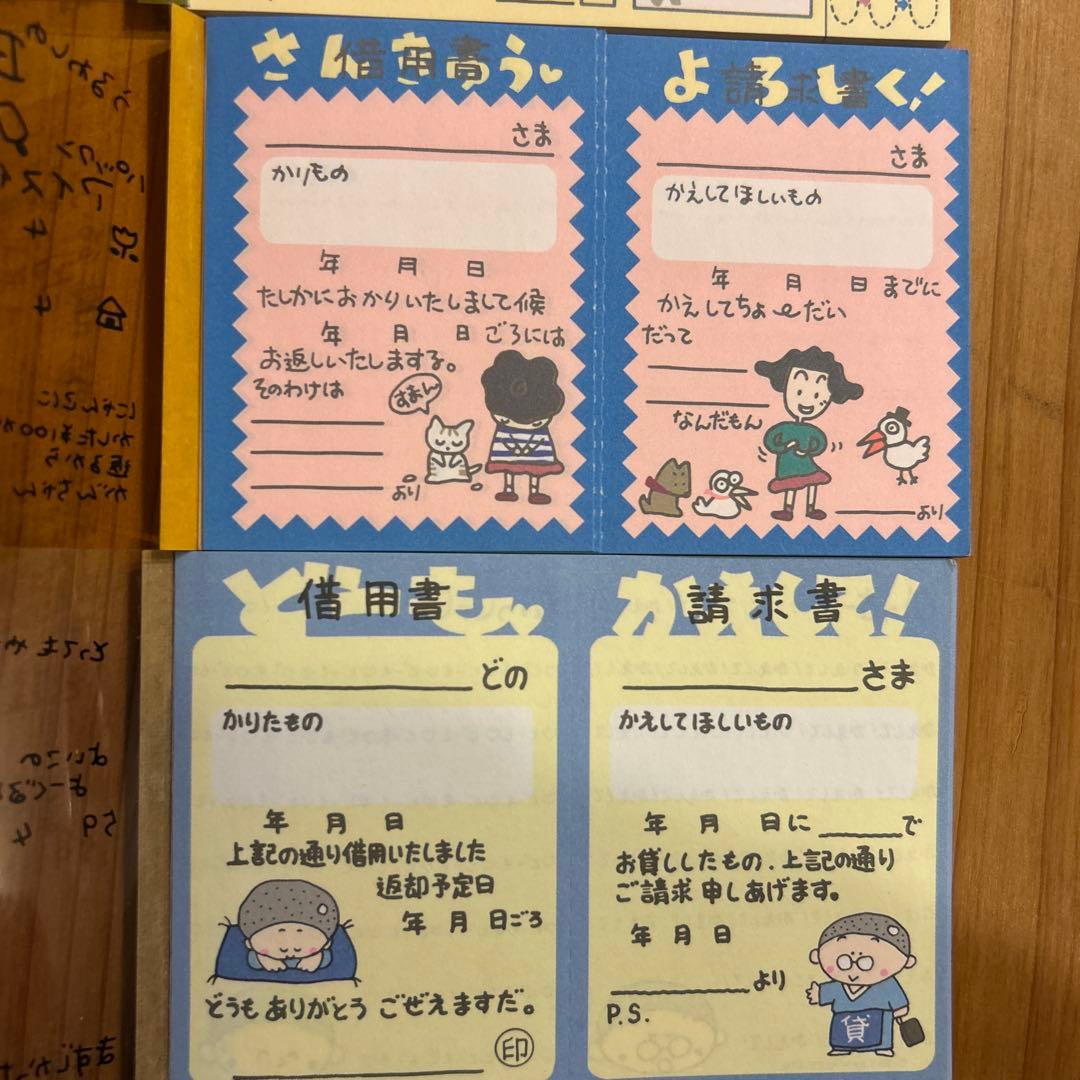 さんきゅう
借用書
さま
かりもの
年 月 日
たしかにおかりいたしまして候
年 月 日ごろには
お返しいたしまする。
そのわけは
すまん
より
よろしく!
請求書
さま
かえしてほしいもの
年 月 日までに
かえしてちょーだい
だって
なんだもん
より
どーも
借用書
どの
かりたもの
年 月 日
上記の通り借用いたしました
返却予定日
年 月 日ごろ
どうもありがとうごぜえますだ。
印
かえして!
請求書
さま
かえしてほしいもの
年 月 日に で
お貸ししたもの、上記の通り
ご請求申しあげます。
年 月 日
より
P.S.
貸